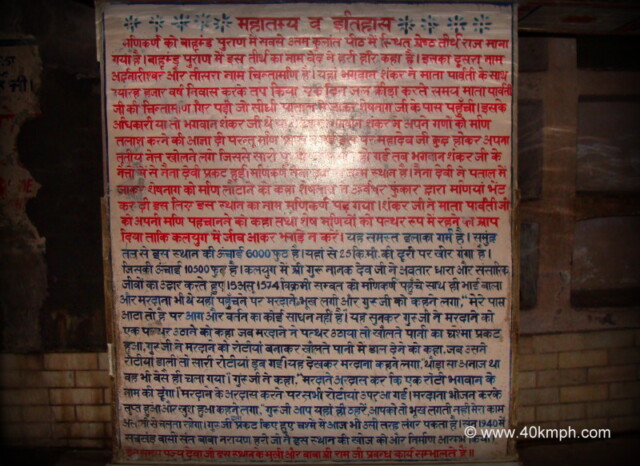 महातम्य व इतिहास
मणिकर्ण को ब्राह्मण्ड पुराण में सबसे उत्तम कुलांत पीठ में स्थित श्रेष्ठ तीर्थ राज माना
गया है। पुराण में इस तीर्थ का नाम हरी हर कहा है। इसका दूसरा नाम
अर्द्धनारीश्वर और तीसरा नाम चिन्तामणि है। यहाँ भगवान शंकर ने माता पार्वती के साथ
ग्यारह हजार वर्ष निवास करके तप किया एक दिन जल क्रीड़ा करते समय माता पार्वती
जी की चिन्तामणि गिर पड़ी जो सीधी पाताल में जाकर शेषनाग जी के पास पहुँची। इसके
अधिकारी भगवान शंकर जी ने अपने गणों को मणि
तलाश करने की आज्ञा दी परन्तु मणि महादेव जी क्रुद्ध होकर अपना
तृतीय नेत्र खोलने लगे जिससे सारा गई तब भगवान शंकर जी के
नेत्रों में से नैना देवी प्रकट हुई। मणिकर्ण स्थान है। नैना देवी ने पताल में
जाकर शेषनाग को मणि लौटाने को कहा शेषनाग ने फुंकार द्वारा मणियां भेंट
कर दी इस लिए इस स्थान का नाम मणिकर्ण पड़ गया। शंकर जी ने माता पार्वती जी
को अपनी मणि पहचानने को कहा तथा शेष मणियों को पत्थर रूप में रहने का श्राप
दिया ताकि कलयुग में जीव आकर झगड़े न करें। यह समस्त इलाका गर्म है। समुंद्र
तल से इस स्थान की ऊंचाई 6000 फुट है। यहां से 25 कि.मी. की दूरी पर खीर गंगा है।
जिसकी ऊंचाई 10500 फुट है। कलयुग में श्री गुरु नानक देव जी ने अवतार धारा और संसारिक
जीवों का उद्धार करते हुए 1574 बिक्रमी सम्वत को मणिकर्ण पहुँचे साथ ही भाई बाला
और मरदाना भी थे यहां पहुँचने पर मरदाने को भूख लगी और गुरु जी को कहने लगा," मेरे पास
आटा तो है पर आग और बर्तन का कोई साधन नही है। यह सुनकर गुरु जी ने मरदाने को
एक पत्थर उठाने को कहा जब मरदाने ने पत्थर उठाया तो खौलते पानी का चश्मा प्रकट
हुआ, गुरु जी ने मरदाने को रोटीयां बनाकर खौलते पानी में डाल देने को कहा. जब उसने
रोटीयां डाली तो सारी रोटीयां डूब गई। यह देखकर मरदाना कहने लगा, थोड़ा सा अनाज था
वह भी वैसे ही चला गया। गुरु जी ने कहा," मरदाने अरदास कर कि एक रोटी भगवान के
नाम की दूंगा। मरदाने के अरदास करने पर सभी रोटीयां उपर आ गई। मरदाना भोजन करके
तृप्त हुआ और खुश हुआ कहने लगा, गुरु जी आप यहां ही ठहरें, आपको तो भूख लगती नही मेरा काम
गुरु जी प्रकट किए हुए चश्मे में आज भी उसी तरह लंगर पकता है। सन 1940 में
संत बाबा नारायण हरी जी ने इस स्थान की खोज की और निर्माण
इस स्थान के और बाबा श्री राम जी प्रबन्ध कार्य सम्भालते है।
© www.40kmph.com